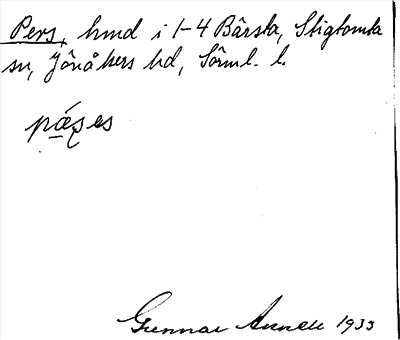 Pers, hmd i 1-4 Bårsta, Stigtomta
sn, Jönåkers hd, Sörml. l.
pá̱ʒes
Gunnar 1933